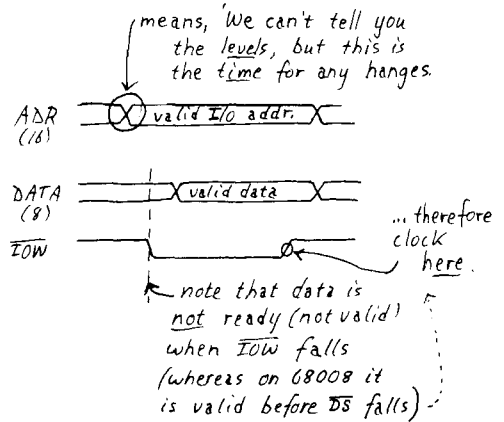 means, 'We can't tell you
the levels, but this is
the time for any hanges.
ADR
(16)
valid I/O addr.
DATA
(8)
valid data
IOW
... therefore
clock
here.
note that data is
not ready (not valid)
when IOW falls
(whereas on 68008 it
is valid before DS falls)